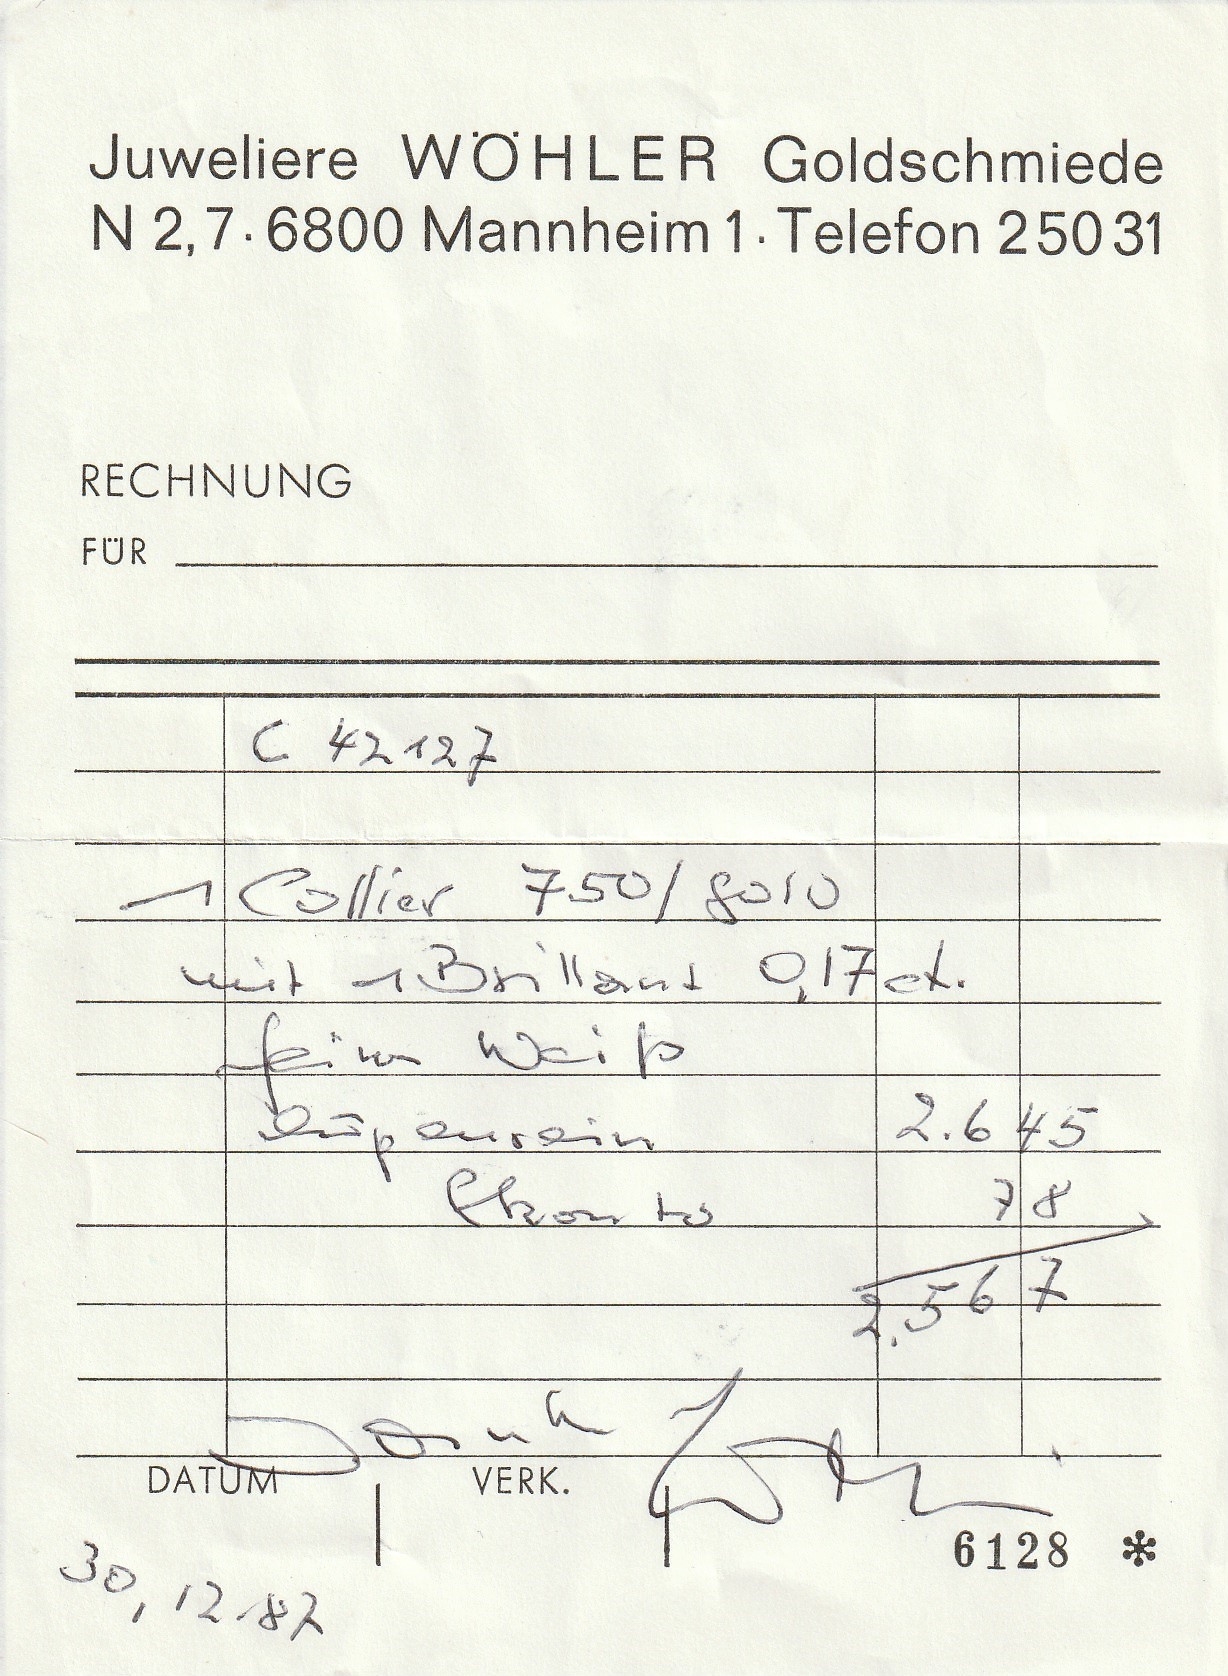 Juweliere WÖHLER Goldschmiede
N 2,7 · 6800 Mannheim 1 · Telefon 2 50 31
RECHNUNG
FÜR
C 42127
1 Collier 750/ gold
mit 1 Brillant 0,17 ct.
fein Weiß
lupenrein 2.645
Skonto 78
2.567
Dank
DATUM VERK.
6128 *
30,12.82